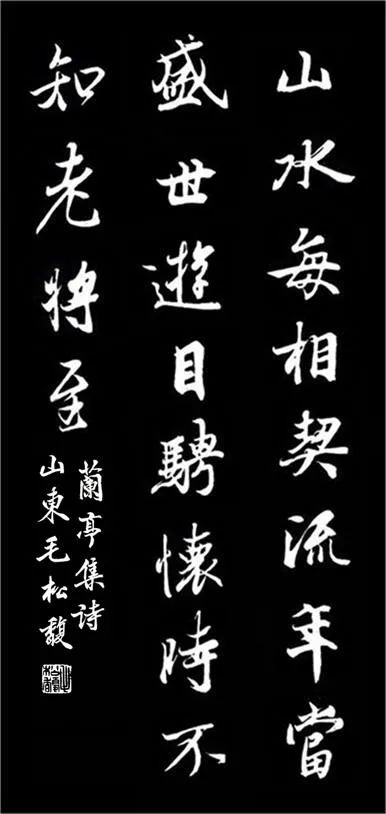 山水每相契流年當
盛世遊目騁懷時不
知老將至
蘭亭集诗
山東毛松馥